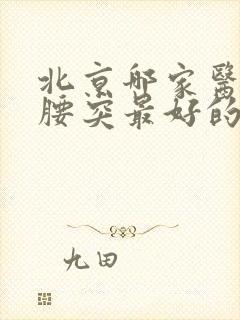 北京邨家醫
腰突最好的
九田